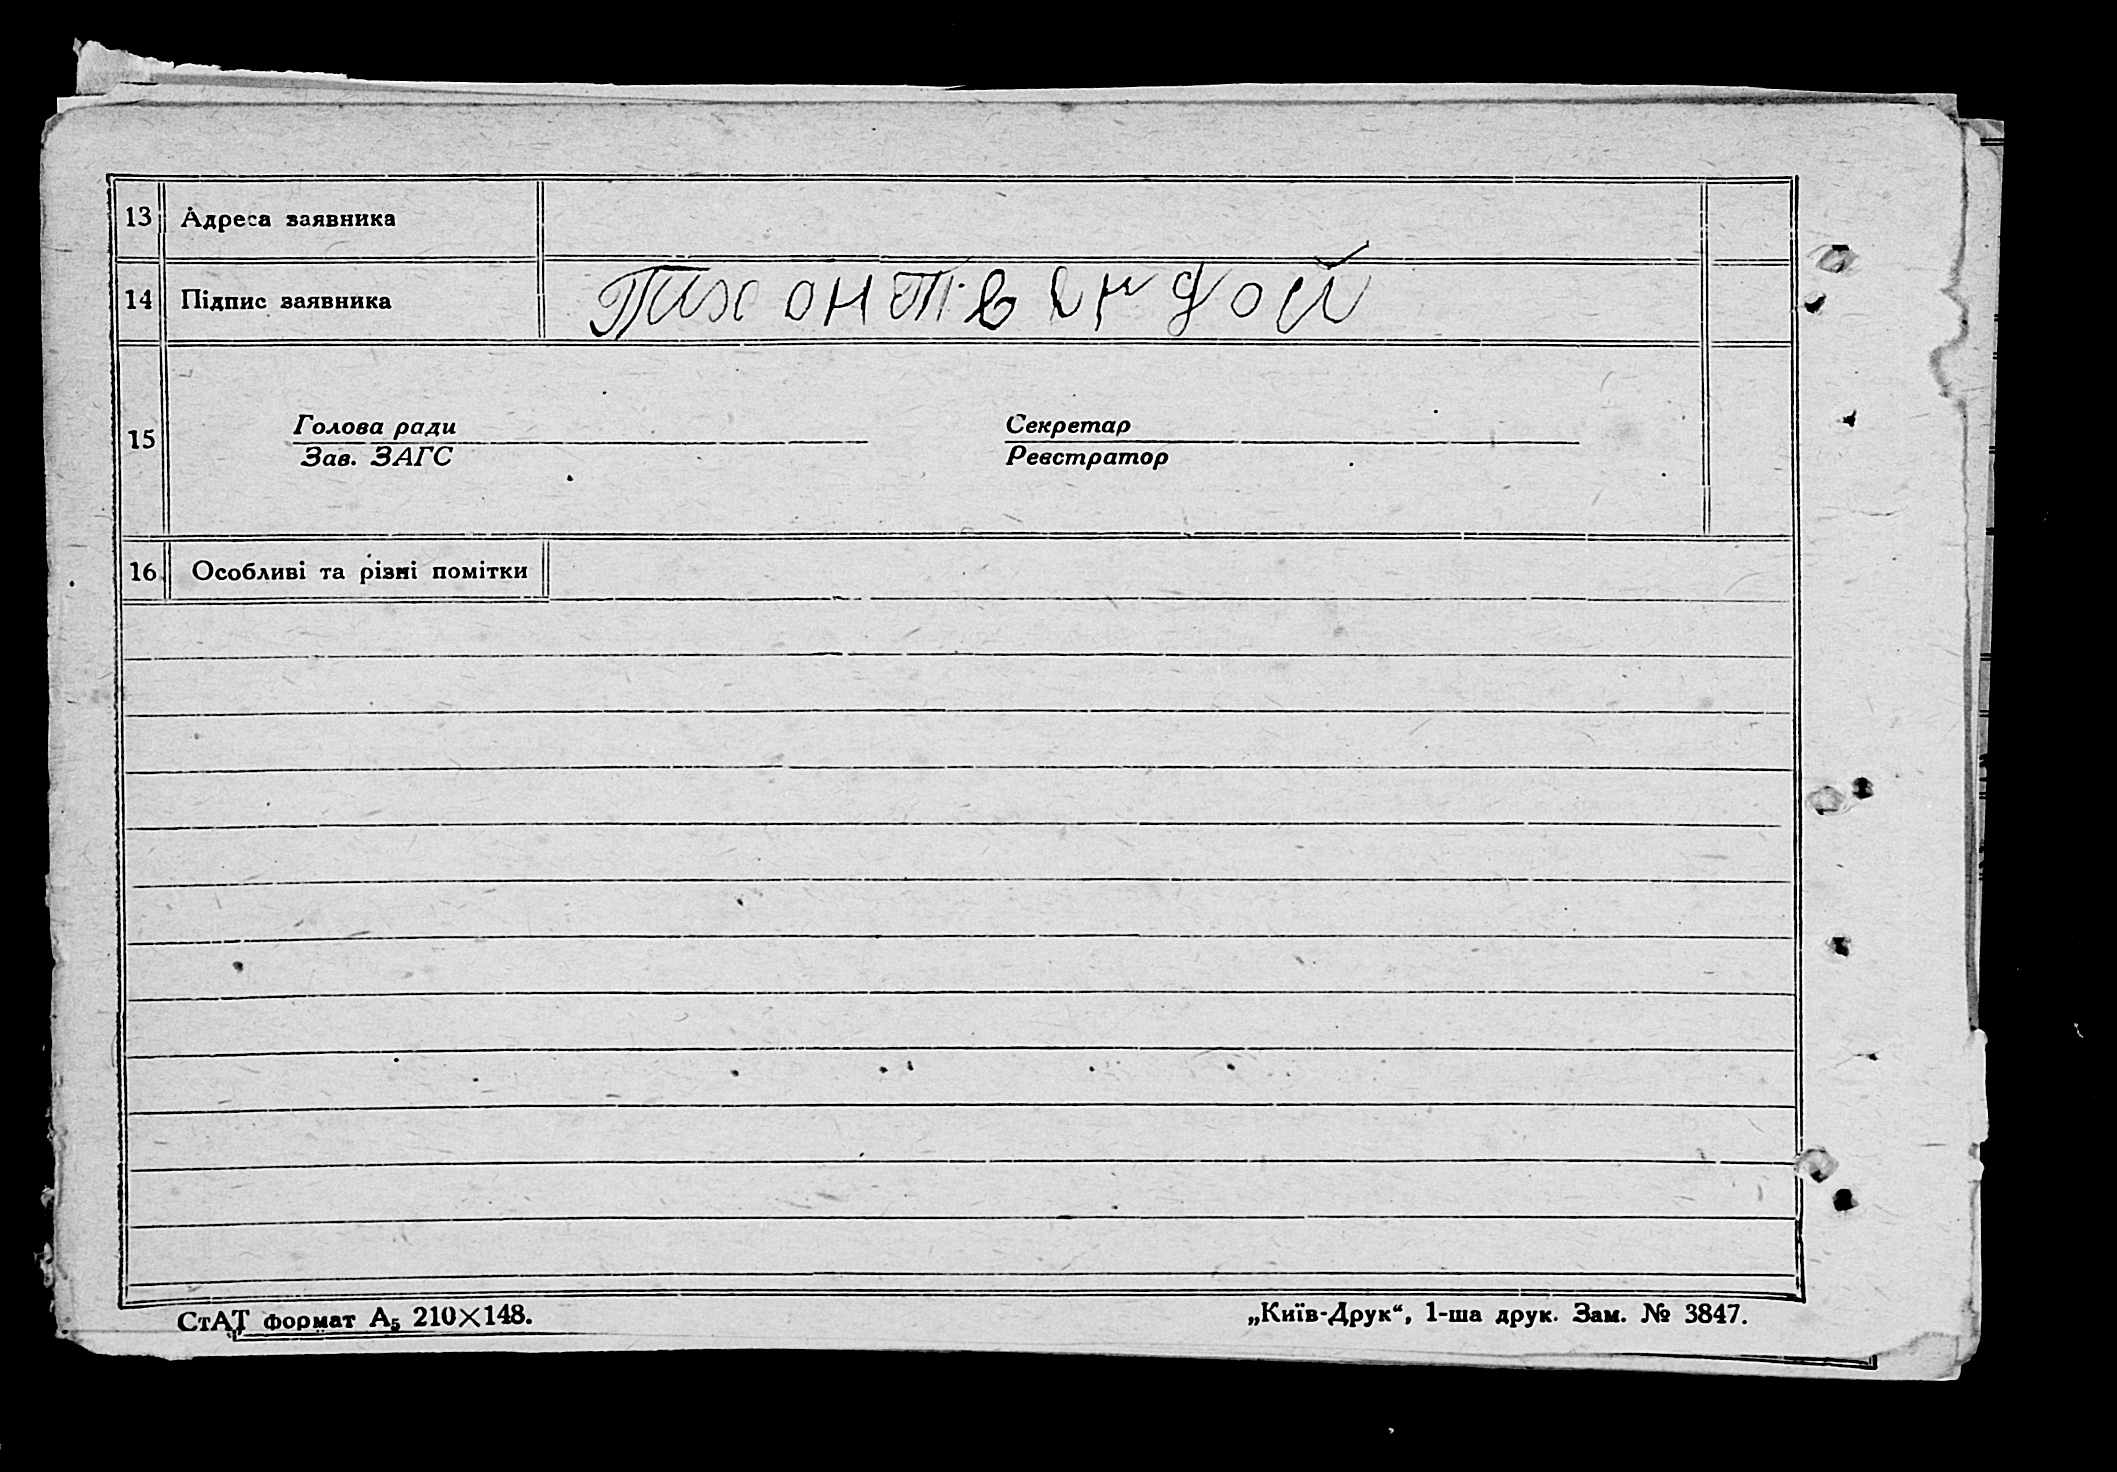 13 Адреса заявника
14 Підпис заявника
15 Голова ради Секретар
Зав. ЗАГС Реєстратор
16 Особливі та різні помітки
СтАТ формат А₅ 210×148.
„Київ-Друк“, 1-ша друк. Зам. № 3847.